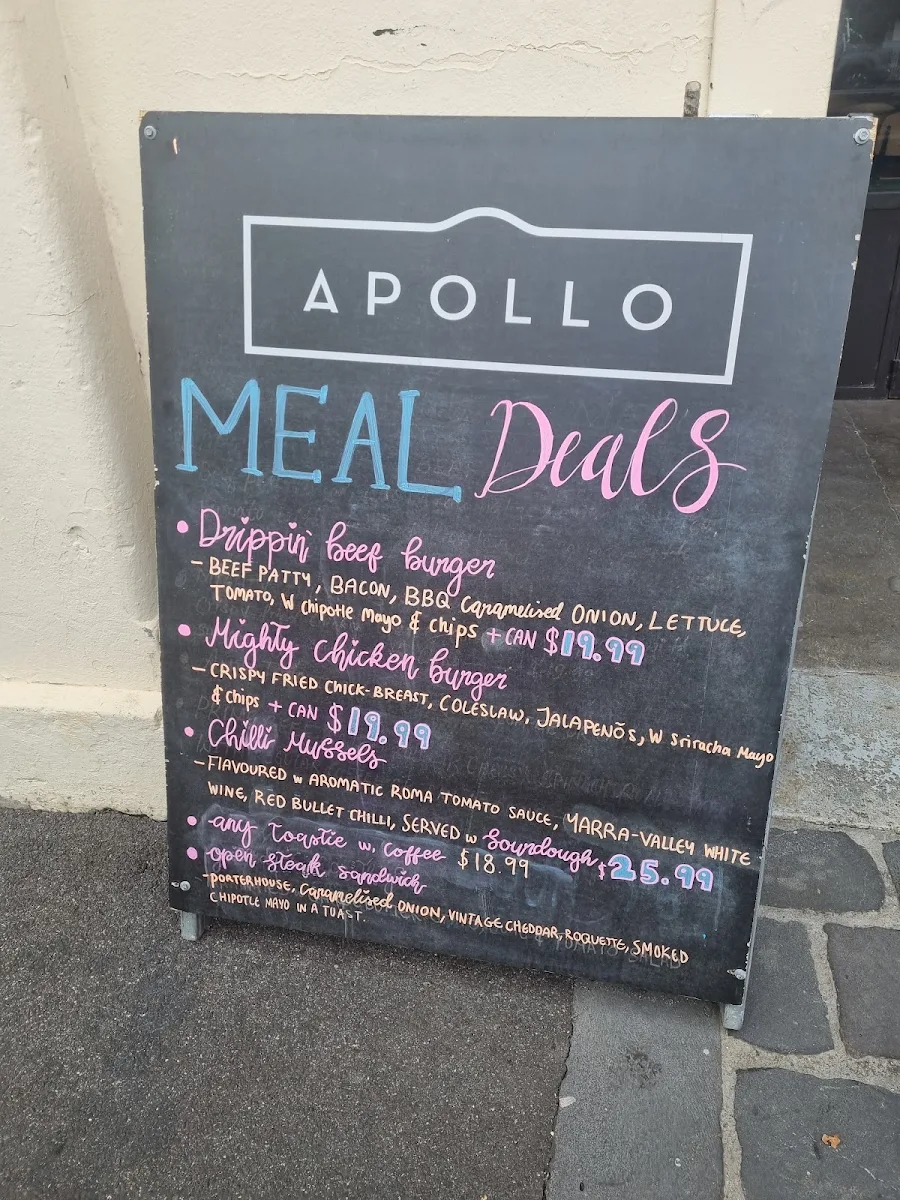 APOLLO
MEAL Deals
• Drippin' beef burger
- BEEF PATTY, BACON, BBQ Caramelised ONION, LETTUCE,
TOMATO, W chipotle Mayo & chips + CAN $19.99
• Mighty chicken burger
- CRISPY FRIED CHICK-BREAST, COLESLAW, JALAPENÕS, W Sriracha Mayo
& chips + CAN $19.99
• Chilli Mussels
- FLAVOURED W AROMATIC ROMA TOMATO SAUCE, YARRA-VALLEY WHITE
WINE, RED BULLET CHILLI, SERVED W Sourdough, $25.99
• any toastie w. coffee $18.99
• open steak sandwich
- PORTERHOUSE, Caramelised ONION, VINTAGE CHEDDAR, ROQUETTE, SMOKED
CHIPOTLE MAYO IN A TUAST.